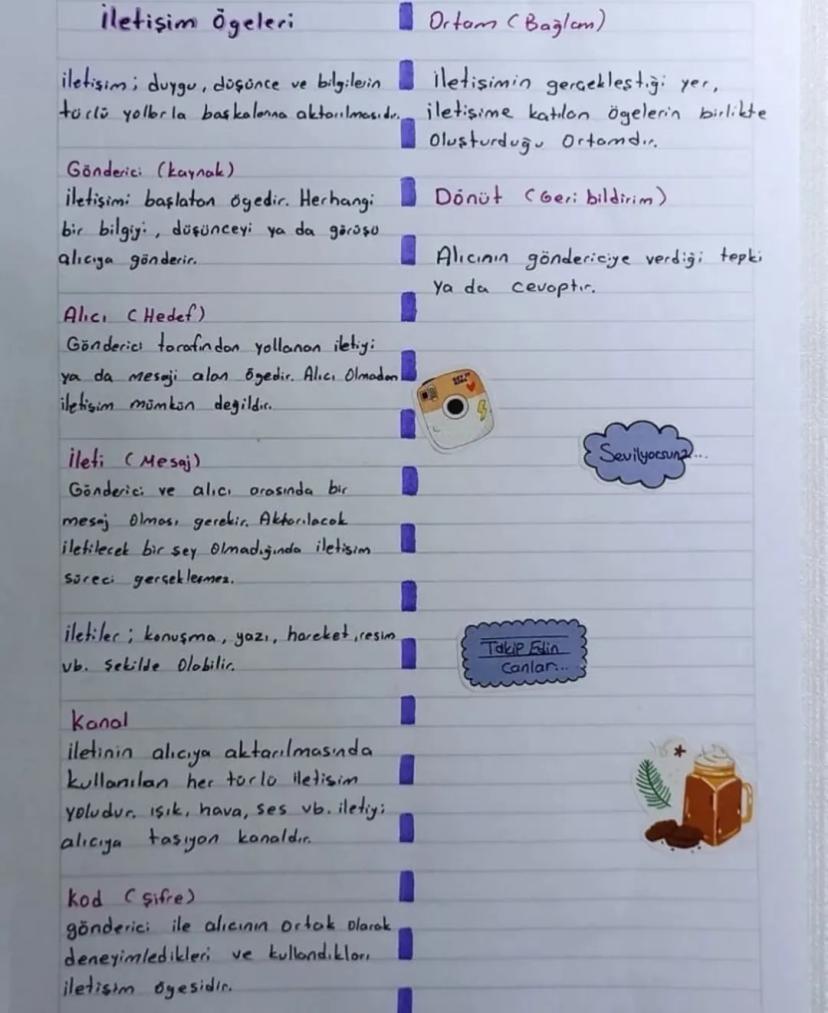 İletişim Ögeleri
iletişim; duygu, düşünce ve bilgilerin
türlü yollarla başkalarına aktarılmasıdır.
Gönderici (kaynak)
iletişimi başlatan ögedir. Herhangi
bir bilgiyi, düşünceyi ya da görüşü
alıcıya gönderir.
Alıcı (Hedef)
Gönderici tarafından yollanan iletiyi
ya da mesajı alan ögedir. Alıcı Olmadan
iletişim mümkün değildir.
İleti (Mesaj)
Gönderici ve alıcı arasında bir
mesaj olması gerekir. Aktarılacak
iletilecek bir şey olmadığında iletişim
süreci gerçekleşmez.
iletiler; konuşma, yazı, hareket, resim
vb. şekilde olabilir.
Kanal
iletinin alıcıya aktarılmasında
kullanılan her türlü iletişim
yoludur. ışık, hava, ses vb. iletiyi
alıcıya taşıyan kanaldır.
kod (Şifre)
gönderici ile alıcının ortak olarak
deneyimledikleri ve kullandıkları
iletişim ögesidir.
Ortam (Bağlam)
İletişimin gerçekleştiği yer,
iletişime katılan ögelerin birlikte
Oluşturduğu Ortamdır.
Dönüt (Geri bildirim)
Alıcının göndericiye verdiği tepki
ya da cevaptır.
Seviliyorsunz...
Takip Edin
Canlar...